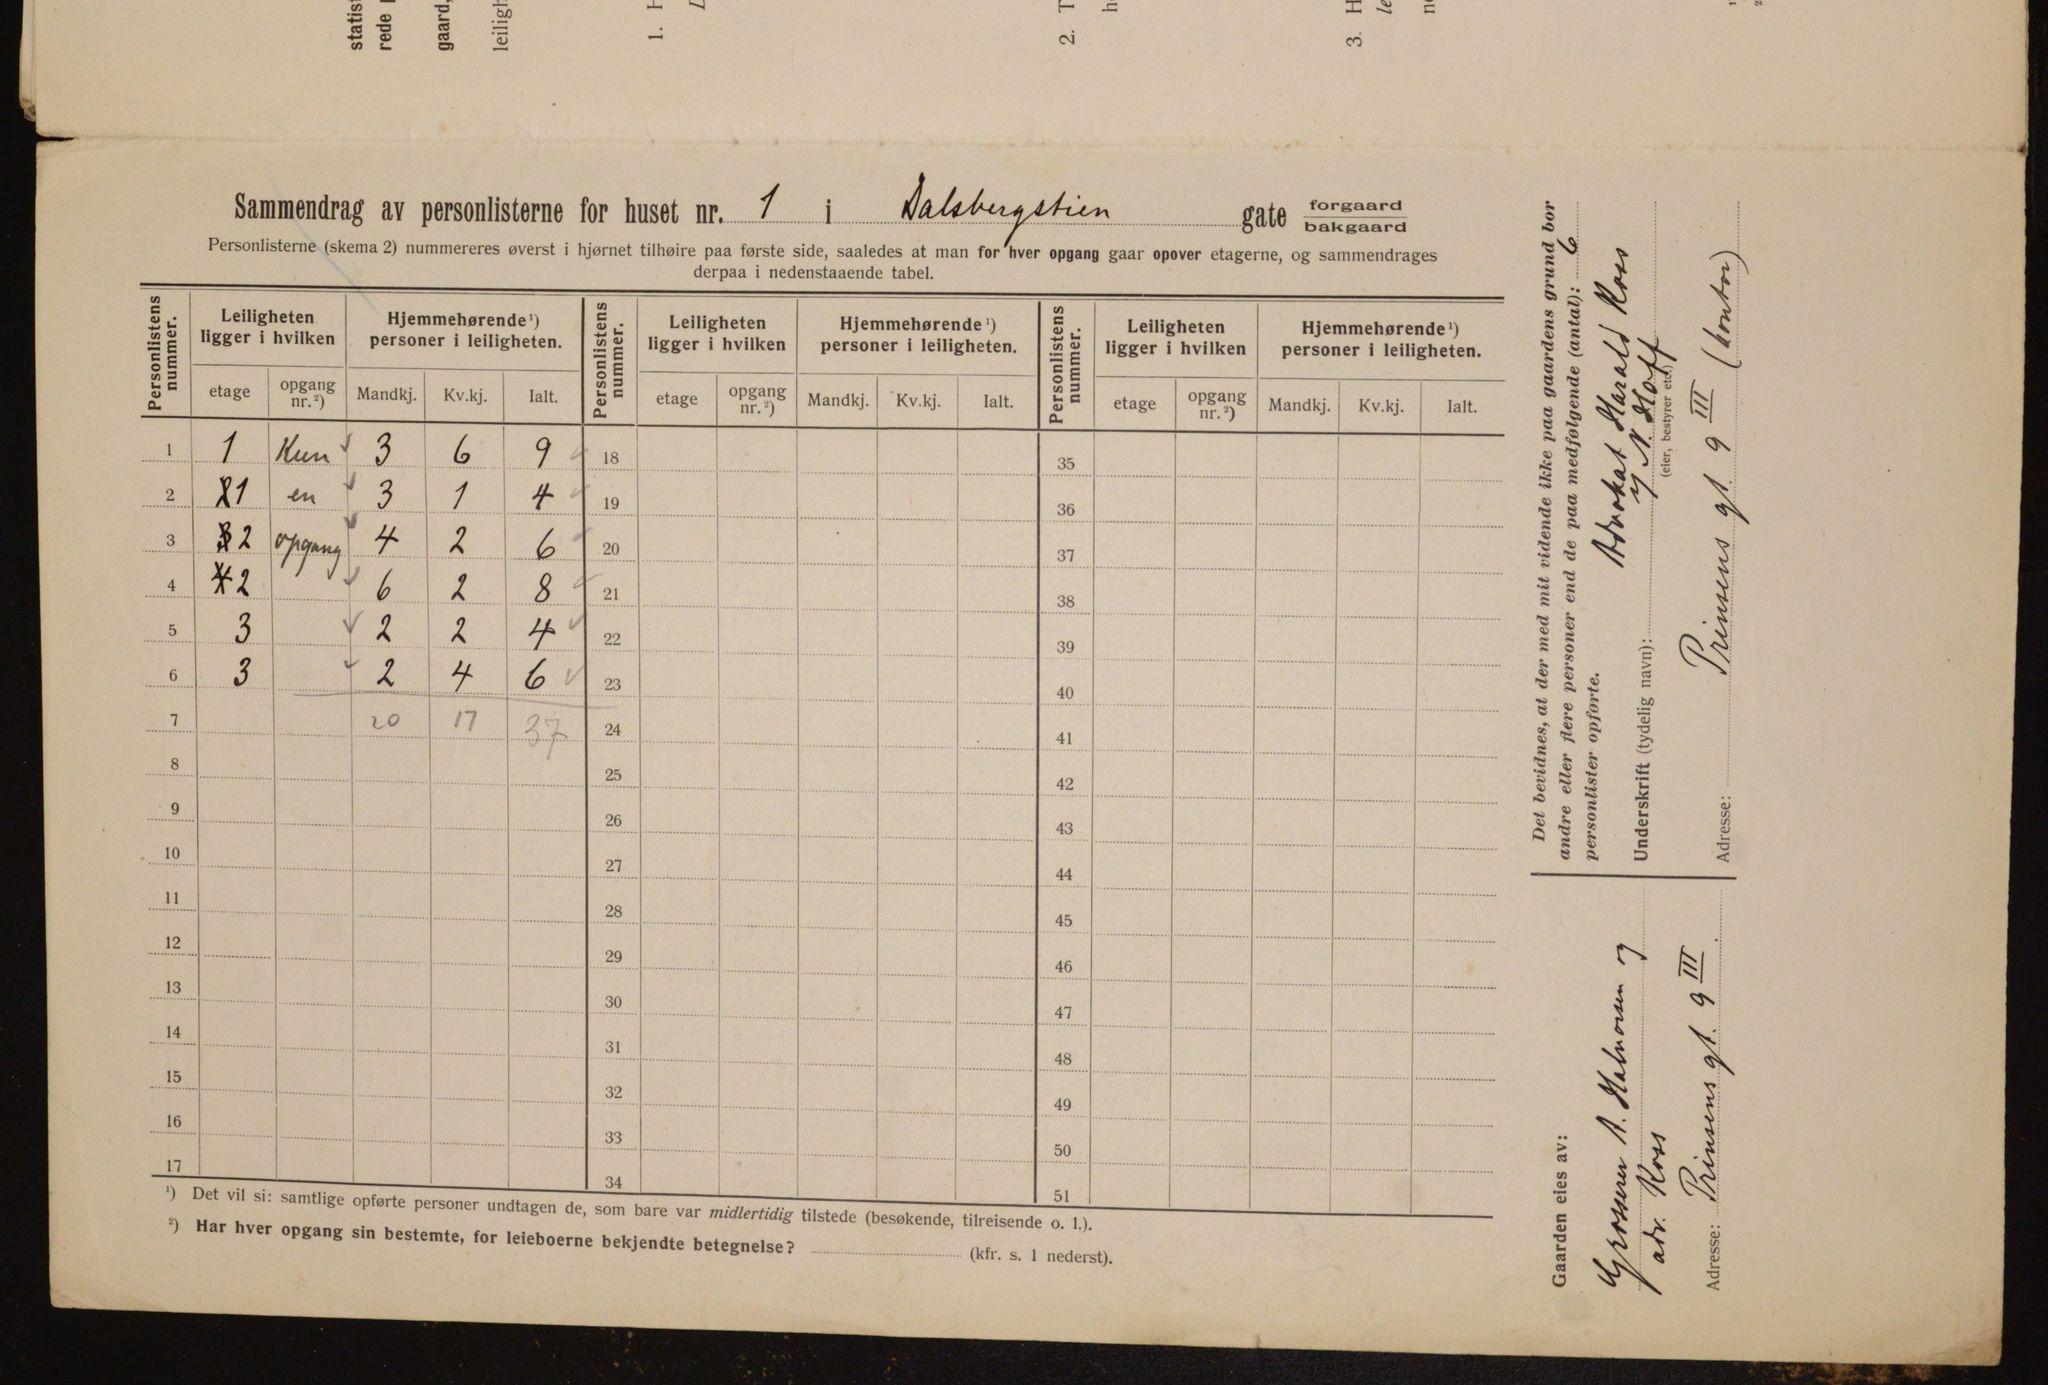 statist
rede p
gaard,
leiligh
1. H
L
2. T
h
3. H
le
n
Sammendrag av personlisterne for huset nr. 1 i Dalsbergstien gate forgaard / bakgaard
Personlisterne (skema 2) nummereres øverst i hjørnet tilhøire paa første side, saaledes at man for hver opgang gaar opover etagerne, og sammendrages
derpaa i nedenstaaende tabel.
Personlistens nummer. Leiligheten ligger i hvilken Hjemmehørende ¹) personer i leiligheten. Personlistens nummer. Leiligheten ligger i hvilken Hjemmehørende ¹) personer i leiligheten. Personlistens nummer. Leiligheten ligger i hvilken Hjemmehørende ¹) personer i leiligheten.
etage opgang nr. ²) Mandkj. Kv.kj. Ialt. etage opgang nr. ²) Mandkj. Kv.kj. Ialt. etage opgang nr. ²) Mandkj. Kv.kj. Ialt.
1 1 Kun 3 6 9 18 35
2 1 en 3 1 4 19 36
3 2 opgang 4 2 6 20 37
4 2 6 2 8 21 38
5 3 2 2 4 22 39
6 3 2 4 6 23 40
7 20 17 37 24 41
8 25 42
9 26 43
10 27 44
11 28 45
12 29 46
13 30 47
14 31 48
15 32 49
16 33 50
17 34 51
¹) Det vil si: samtlige opførte personer undtagen de, som bare var midlertidig tilstede (besøkende, tilreisende o. l.).
²) Har hver opgang sin bestemte, for leieboerne bekjendte betegnelse? (kfr. s. 1 nederst).
Det bevidnes, at der med mit vidende ikke paa gaardens grund bor
andre eller flere personer end de paa medfølgende (antal): 6
personlister opførte.
Advokat Harald Koss
Underskrift (tydelig navn): N. Hoff
(eier, bestyrer etc.)
Adresse: Prinsens gt. 9 III (kontor)
Gaarden eies av:
Grosserer A. Halvorsen og
adv. Koss
Adresse: Prinsens gt. 9 III